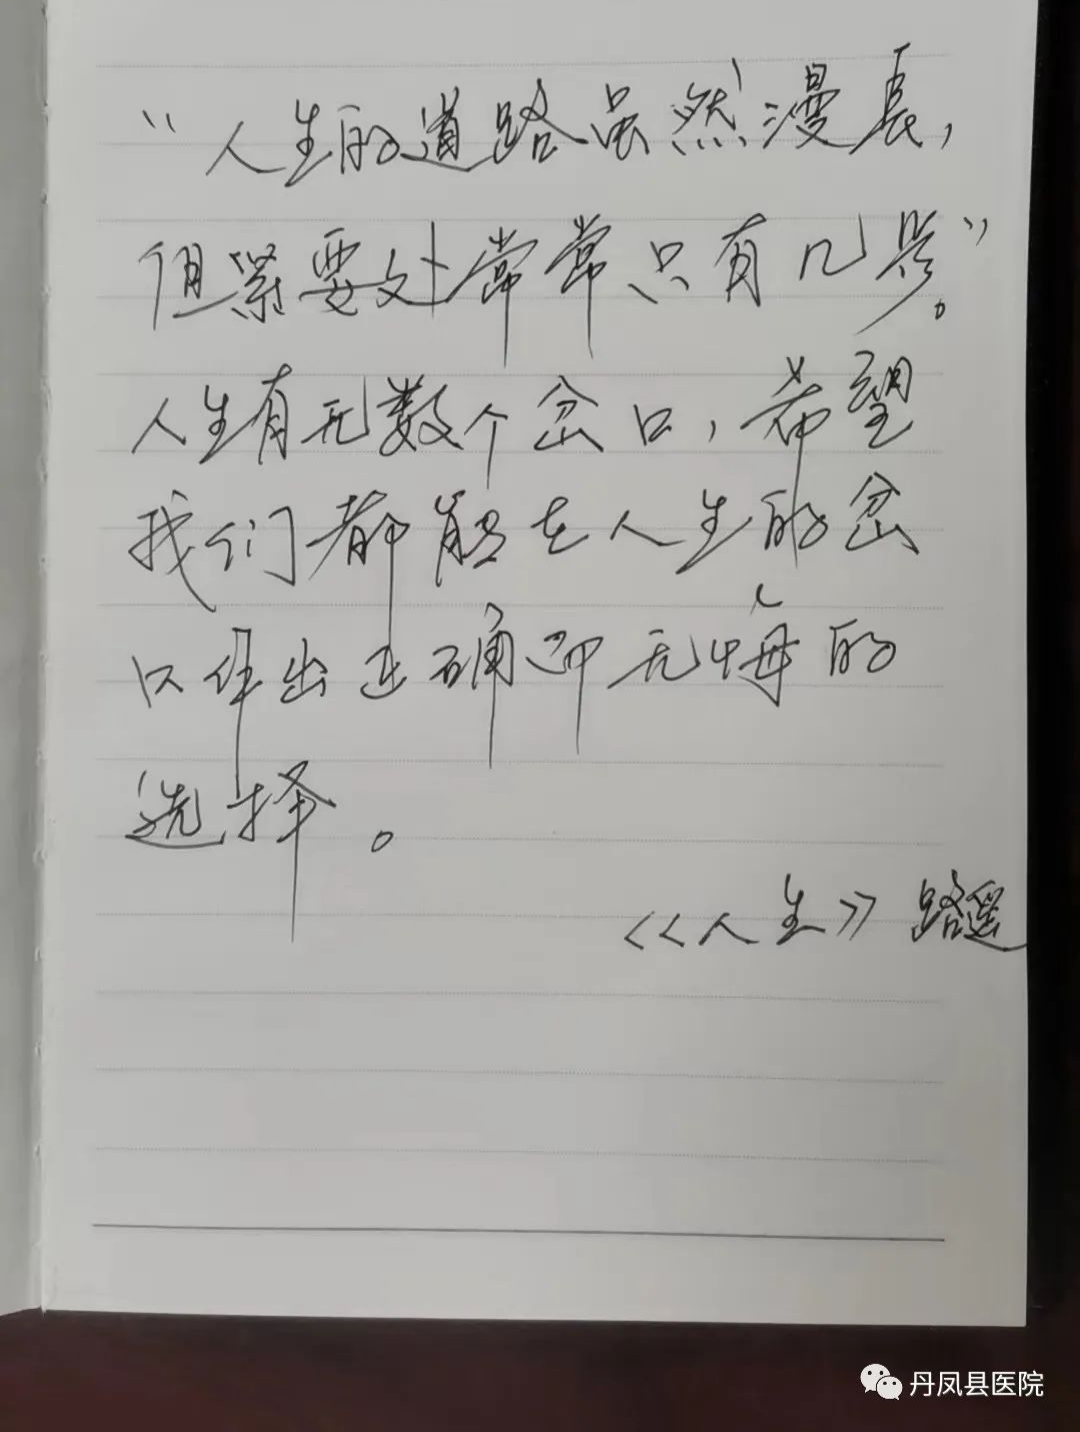 “人生的道路虽然漫长,
但紧要处常常只有几步”。
人生有无数个岔口,希望
我们都能在人生的岔
口作出正确即无悔的
选择。
<<人生>> 路遥
丹凤县医院